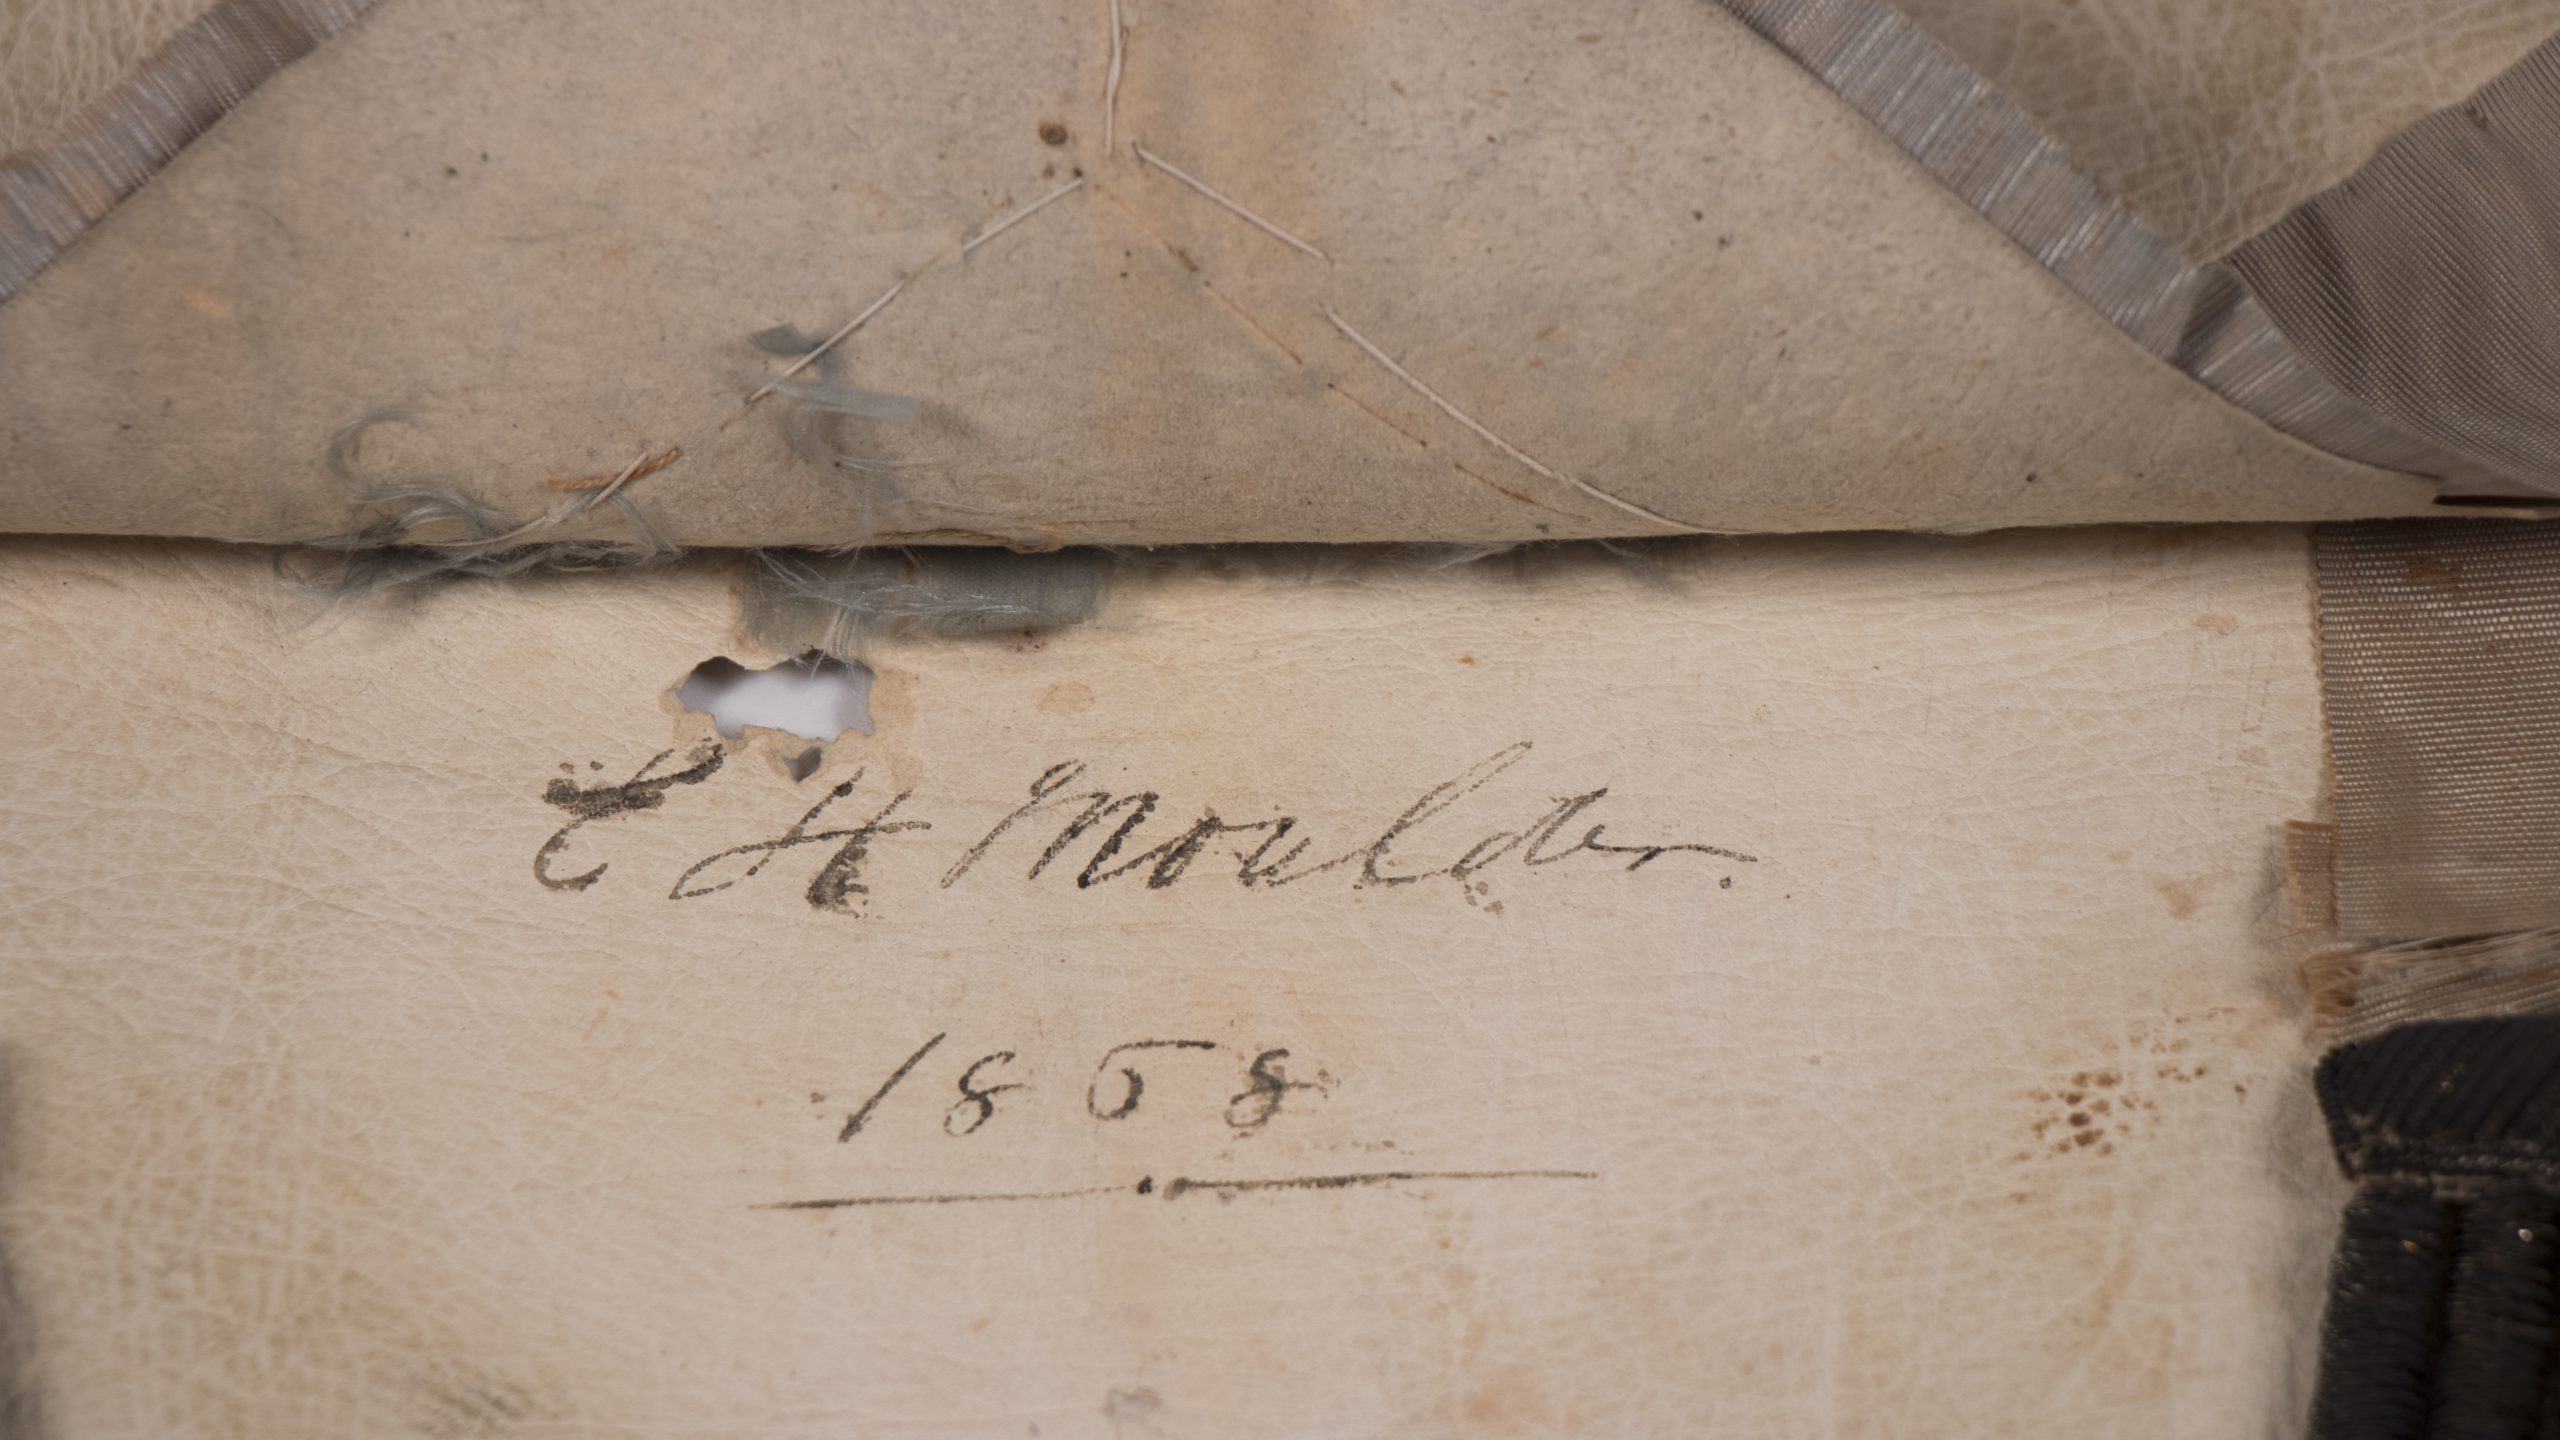 E H Moulder.
1858